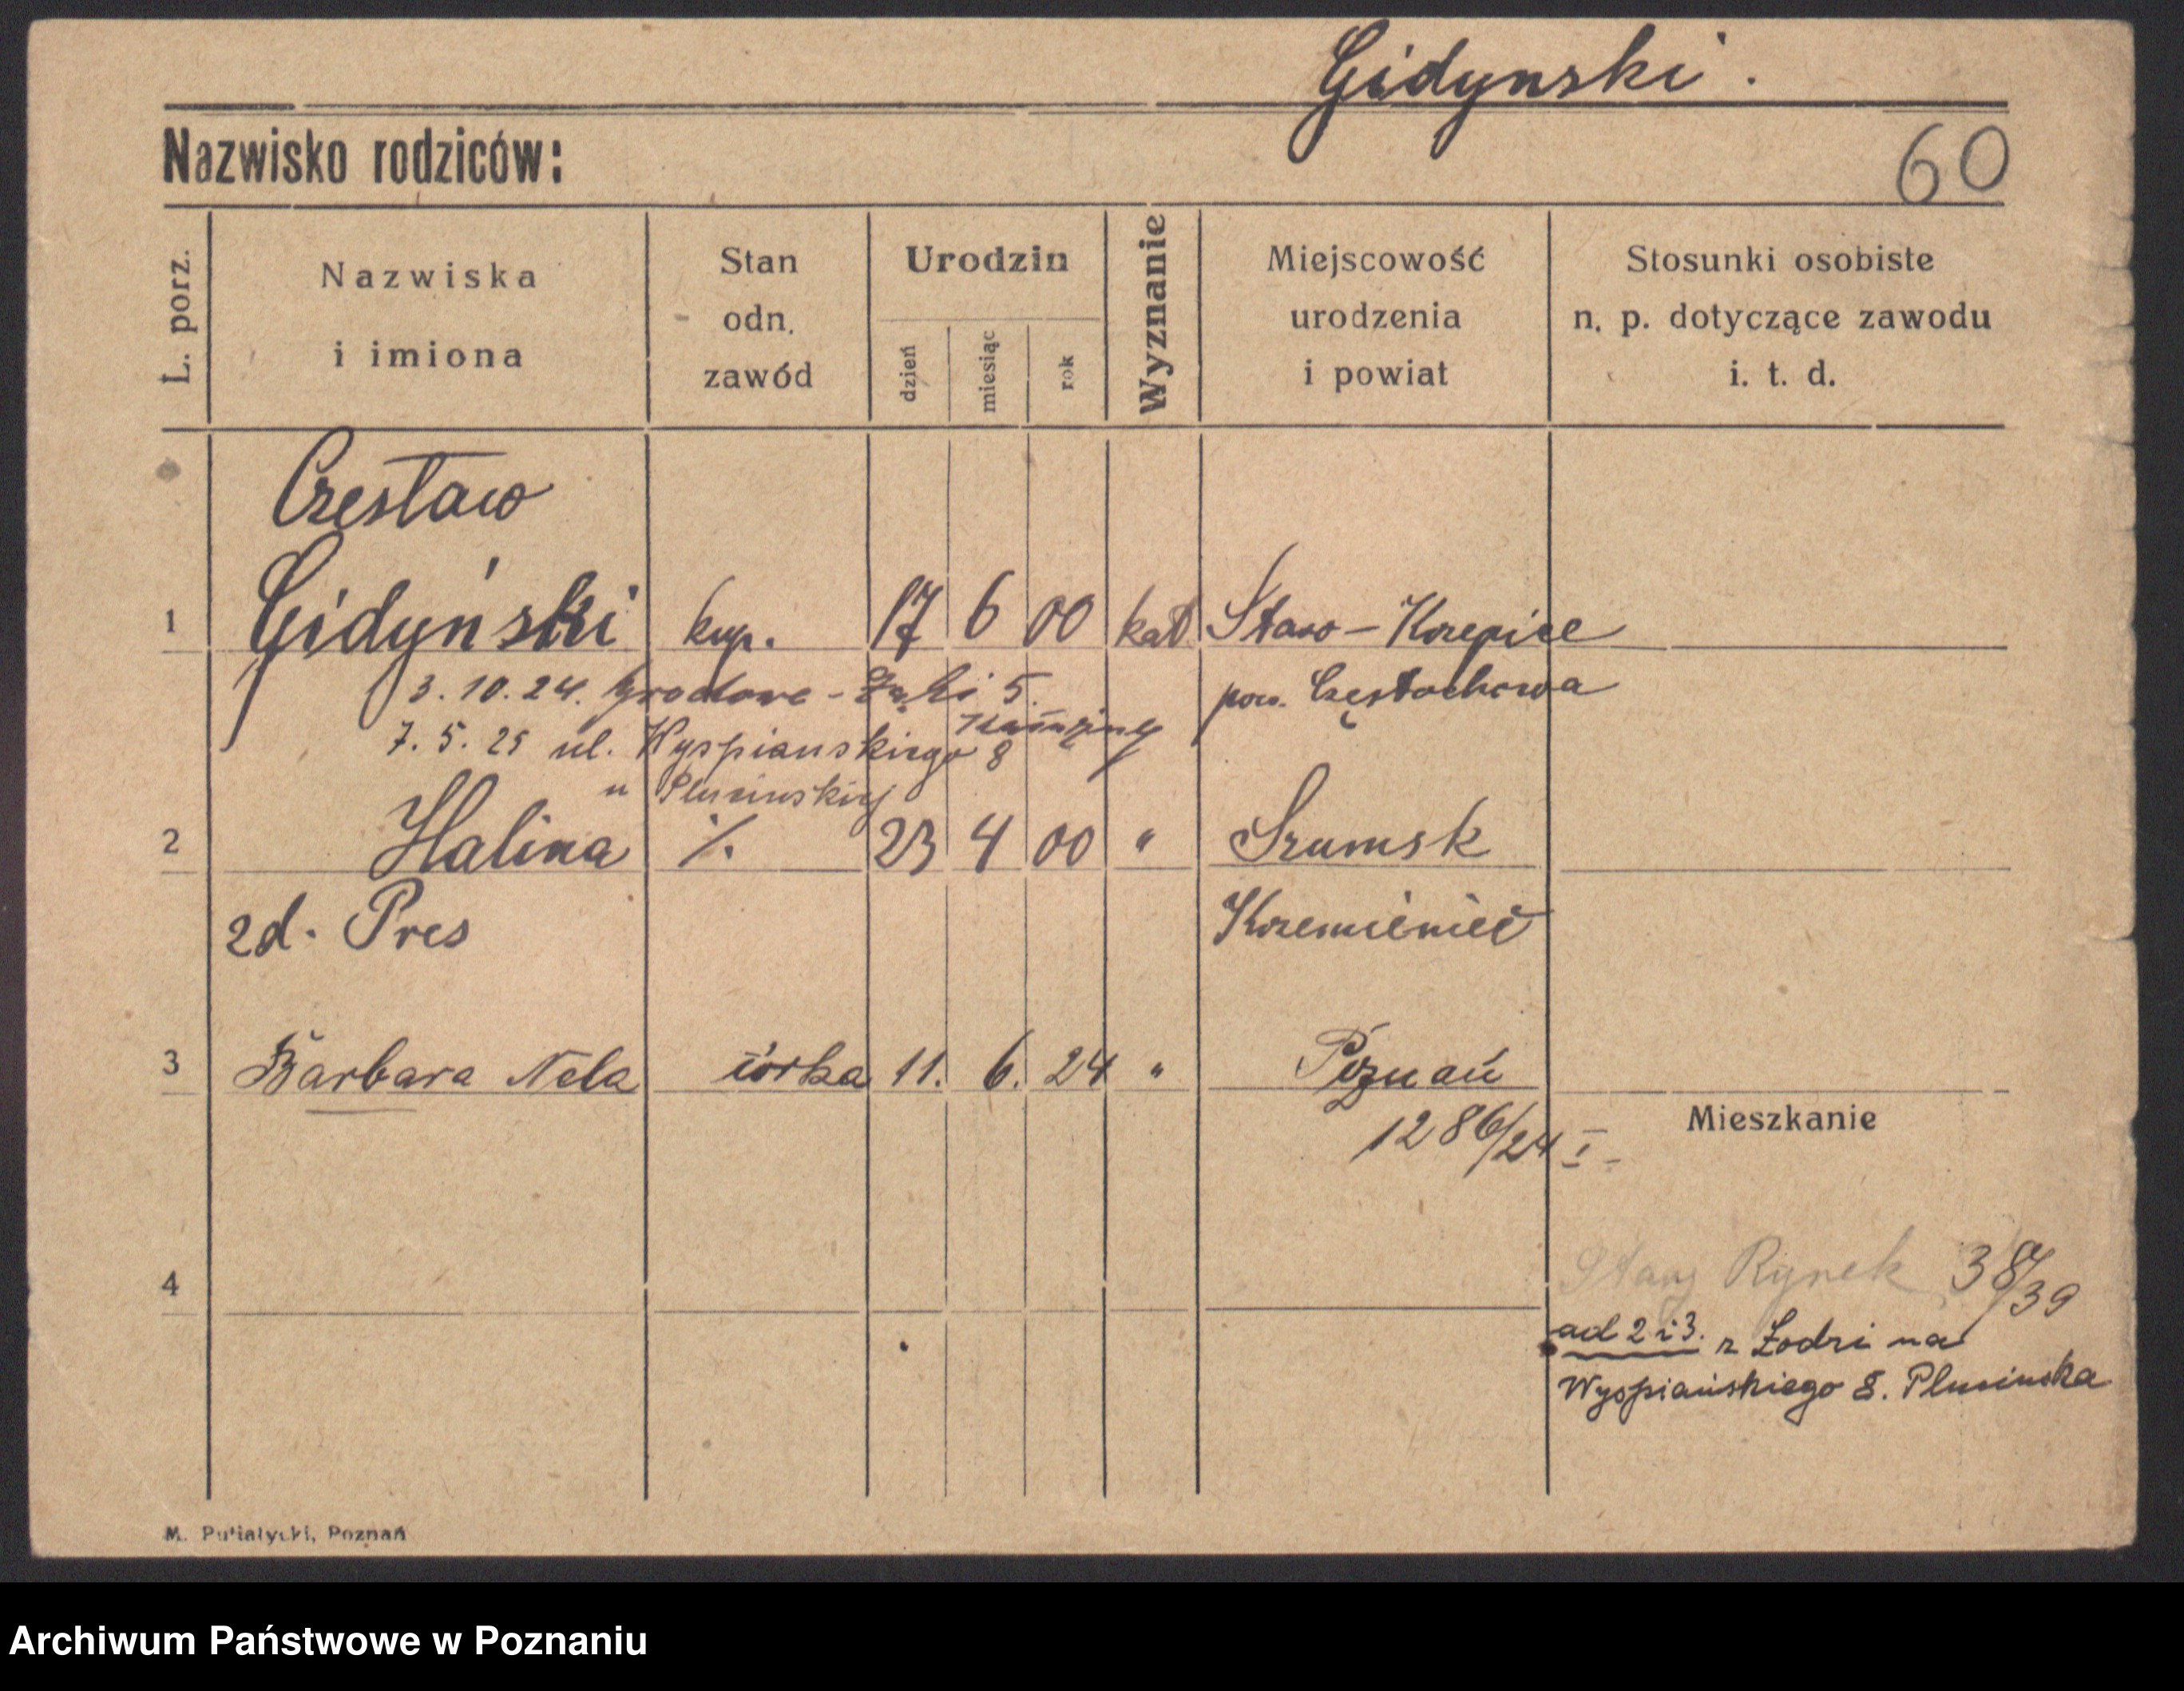 Gidynski.
Nazwisko rodziców:
60
L. porz.
Nazwiska i imiona
Stan odn. zawód
Urodzin
dzień miesiąc rok
Wyznanie
Miejscowość urodzenia i powiat
Stosunki osobiste n. p. dotyczące zawodu i. t. d.
Czesław
1 Gidyński kup. 17 6 00 kat Staro-Krzepice
3. 10. 24. 5 pow. Częstochowa
7. 5. 25 ul. Wyspianskiego 8
u Plucinskiej
2 Halina ./. 23 4 00 " Szumsk
zd. Pres Krzemieniec
3 Barbara Nela córka 11. 6. 24 " Poznań
1286/24 I
Mieszkanie
4
Stary Rynek 38/39
ad 2 i 3. z Łodzi na
Wyspiańskiego 8. Plucinska
M. Putiatycki, Poznań
Archiwum Państwowe w Poznaniu